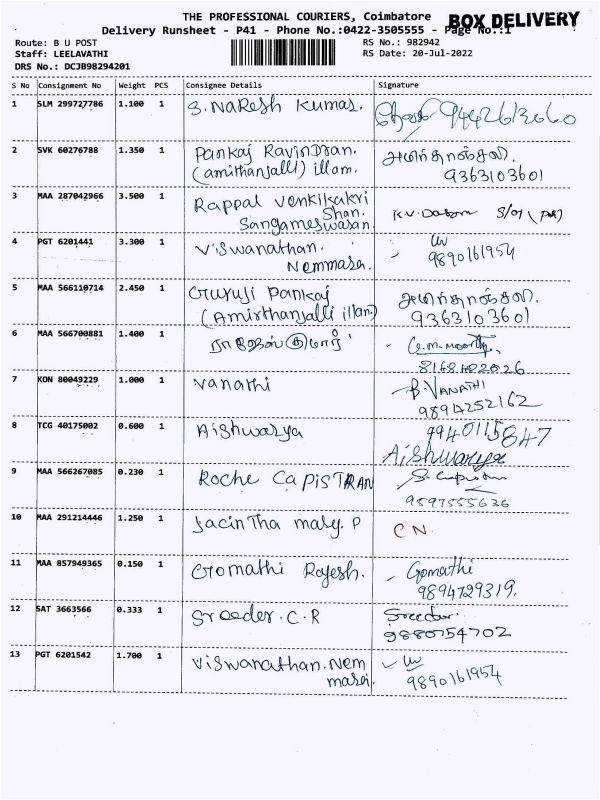 THE PROFESSIONAL COURIERS, Coimbatore
BOX DELIVERY
Delivery Runsheet - P41 - Phone No.:0422-3505555 - Page No.:1
Route: B U POST
RS No.: 982942
Staff: LEELAVATHI
RS Date: 20-Jul-2022
DRS No.: DCJB98294201
S No Consignment No Weight PCS Consignee Details Signature
1 SLM 299727786 1.100 1 S. Naresh Kumar. 9442613060
2 SVK 60276788 1.350 1 Pankaj Ravindran.
(amithanjalli) illam. 9363103601
3 MAA 287042966 3.500 1 Rappal Venkikakri
Shan.
Sangameswaran.
4 PGT 6201441 3.300 1 Viswanathan. 9890161954
Nemmara.
5 MAA 566110714 2.450 1 Guruji Pankaj
(Amirthanjalli illam) 9363103601
6 MAA 566700881 1.400 1 ராஜேஷ் குமார் G.M. Moorthy
8168402026
7 KON 80049229 1.000 1 Vanathi B. VANATHI
9894252162
8 TCG 40175002 0.600 1 Aishwarya 9940115847
Aishwarya
9 MAA 566267085 0.230 1 Roche CaPiSTRAN
9597555636
10 MAA 291214446 1.250 1 Jacintha mary. P C N.
11 MAA 857949365 0.150 1 Gomathi Rajesh. Gomathi
9894729319.
12 SAT 3663566 0.333 1 Sreeder. C. R Sreedar.
9880754702
13 PGT 6201542 1.700 1 Viswanathan. Nem
marai. 9890161954